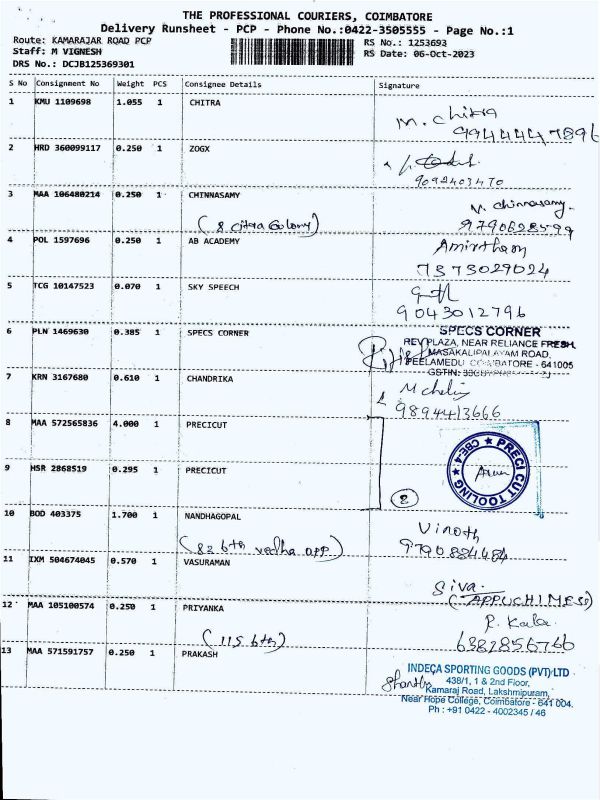 THE PROFESSIONAL COURIERS, COIMBATORE
Delivery Runsheet - PCP - Phone No.:0422-3505555 - Page No.:1
Route: KAMARAJAR ROAD PCP
Staff: M VIGNESH
DRS No.: DCJB125369301
RS No.: 1253693
RS Date: 06-Oct-2023
S No Consignment No Weight PCS Consignee Details Signature
1 KMU 1109698 1.055 1 CHITRA
M. Chitra
9944447896
2 HRD 360099117 0.250 1 ZOGX
9092403470
3 MAA 106480214 0.250 1 CHINNASAMY
M. Chinnasamy
(8 Citra Colony) 9790628599
4 POL 1597696 0.250 1 AB ACADEMY
Amirtham
7373029024
5 TCG 10147523 0.070 1 SKY SPEECH
9043012796
6 PLN 1469630 0.385 1 SPECS CORNER
SPECS CORNER
REY PLAZA, NEAR RELIANCE FRESH,
MASAKALIPALAYAM ROAD,
PEELAMEDU COIMBATORE - 641005
GSTIN:
7 KRN 3167680 0.610 1 CHANDRIKA
9894413666
8 MAA 572565836 4.000 1 PRECICUT
9 HSR 2868519 0.295 1 PRECICUT
PRECI CUT TOOLING
CBE-4
Arun
2
10 BOD 403375 1.700 1 NANDHAGOPAL
Vinoth
(82 6th vedha app) 9790884484
11 IXM 504674045 0.570 1 VASURAMAN
Siva.
(APPUCHIMESS)
12 MAA 105100574 0.250 1 PRIYANKA
P. Kala
(115 6th) 6382856766
13 MAA 571591757 0.250 1 PRAKASH
INDECA SPORTING GOODS (PVT) LTD
438/1, 1 & 2nd Floor,
Kamaraj Road, Lakshmipuram,
Near Hope College, Coimbatore - 641 004.
Ph : +91 0422 - 4002345 / 46